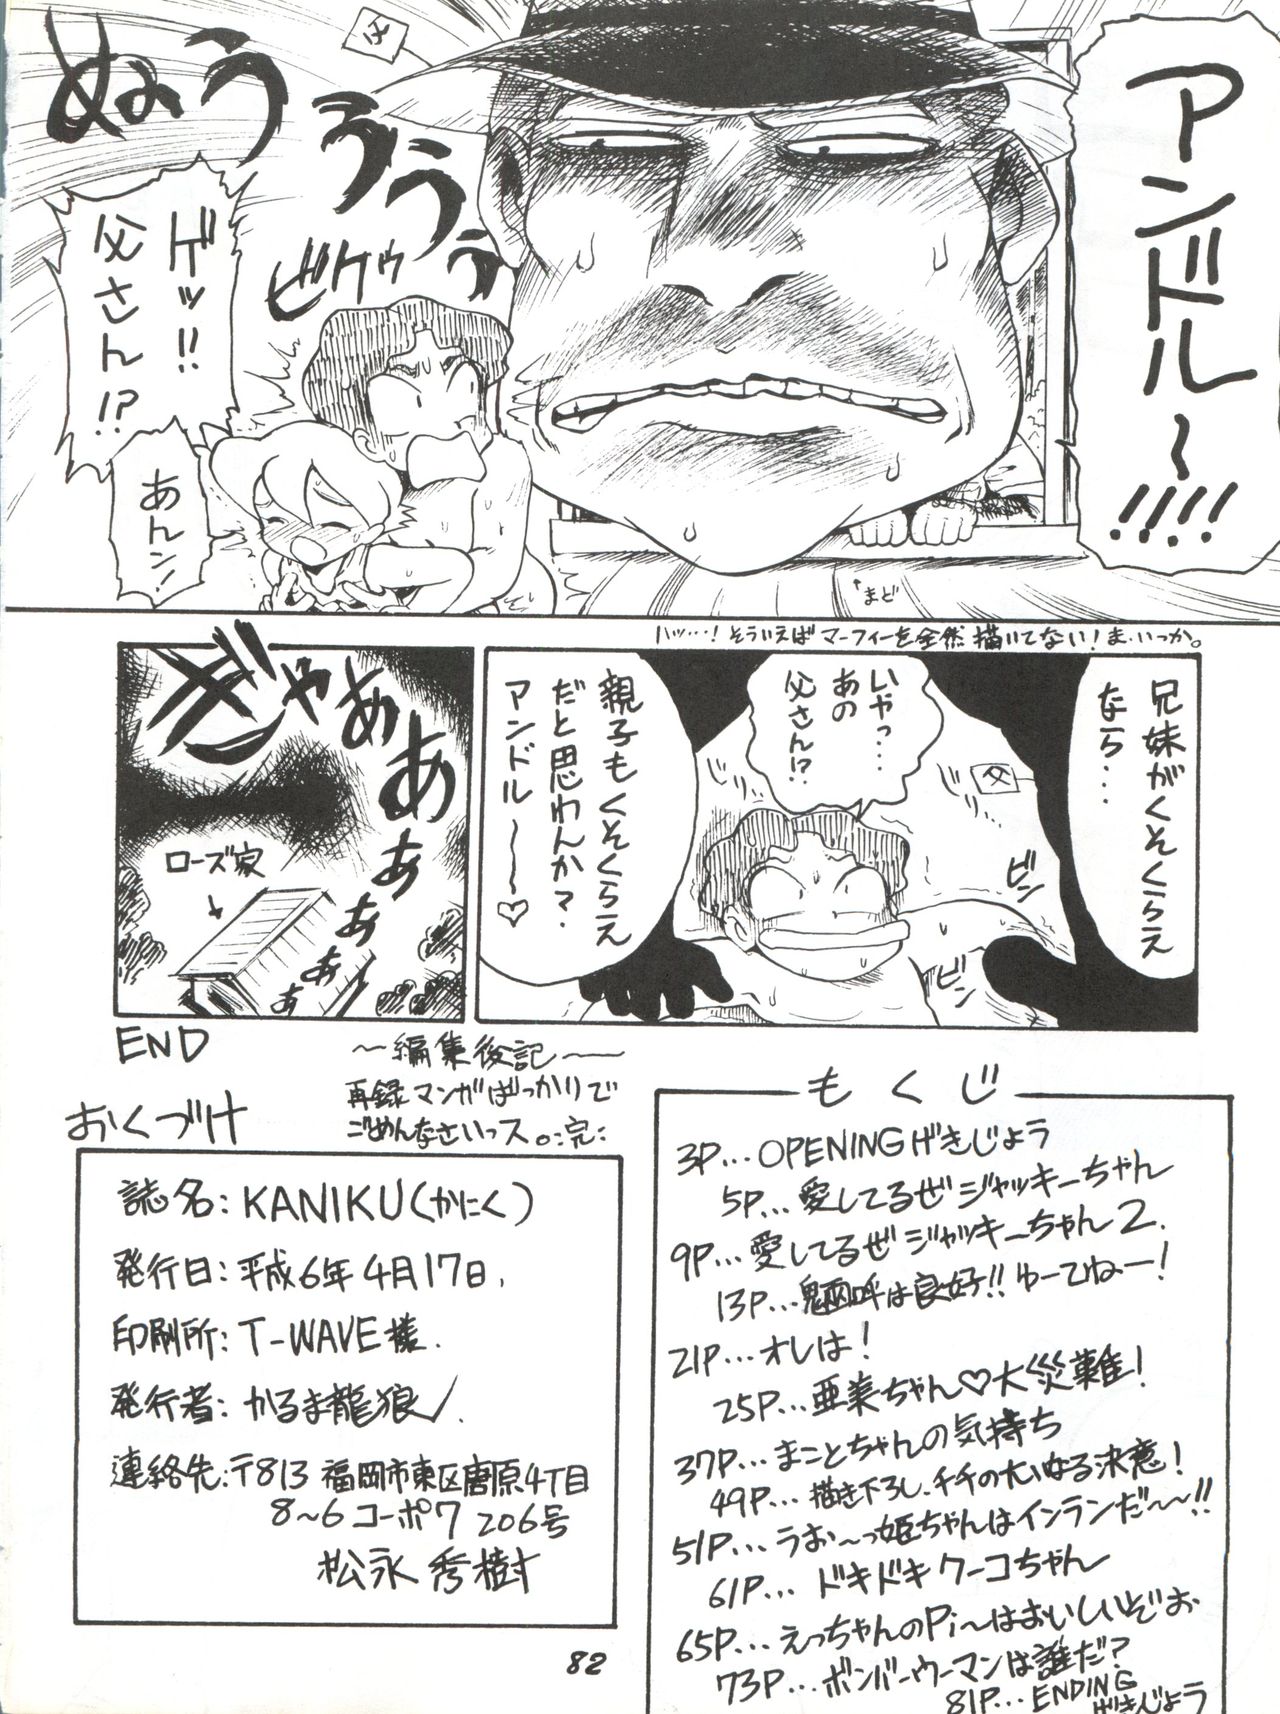 アンドル〜!!!!
父
ぬぅう
うううぅ
ゲッ!!
父さん!?
ビクゥ
あんっ!
まど
ハッ…!そういえばマーフィーを全然描いてない!ま、いっか。
兄妹がくそくらえ
なら…
いやっ…
あの
父さん!?
父
親子もくそくらえ
だと思わんか?
アンドル〜〜♡
ビン
ビン
ぎゃああああああぁ
ローズ家
END
〜編集後記〜
再録マンガばっかりで
ごめんなさいっス。:完:
おくづけ
誌名:KANIKU(かにく)
発行日:平成6年4月17日.
印刷所:T-WAVE様.
発行者:かるま龍狼.
連絡先:〒813 福岡市東区唐原4丁目
8〜6 コーポワ 206号
松永秀樹
もくじ
3P…OPENINGげきじょう
5P…愛してるぜジャッキーちゃん
9P…愛してるぜジャッキーちゃん2.
13P…魍呼は良好!!ゆーてねー!
21P…オレは!
25P…亜美ちゃん♡大災難!
37P…まことちゃんの気持ち
49P…描き下ろし、チチの大いなる決意!
51P…うお〜っ姫ちゃんはインランだ〜〜!!
61P…ドキドキクーコちゃん
65P…えっちゃんのPi〜はおいしいぞお
73P…ボンバーウーマンは誰だ?
81P…ENDING
げきじょう
82